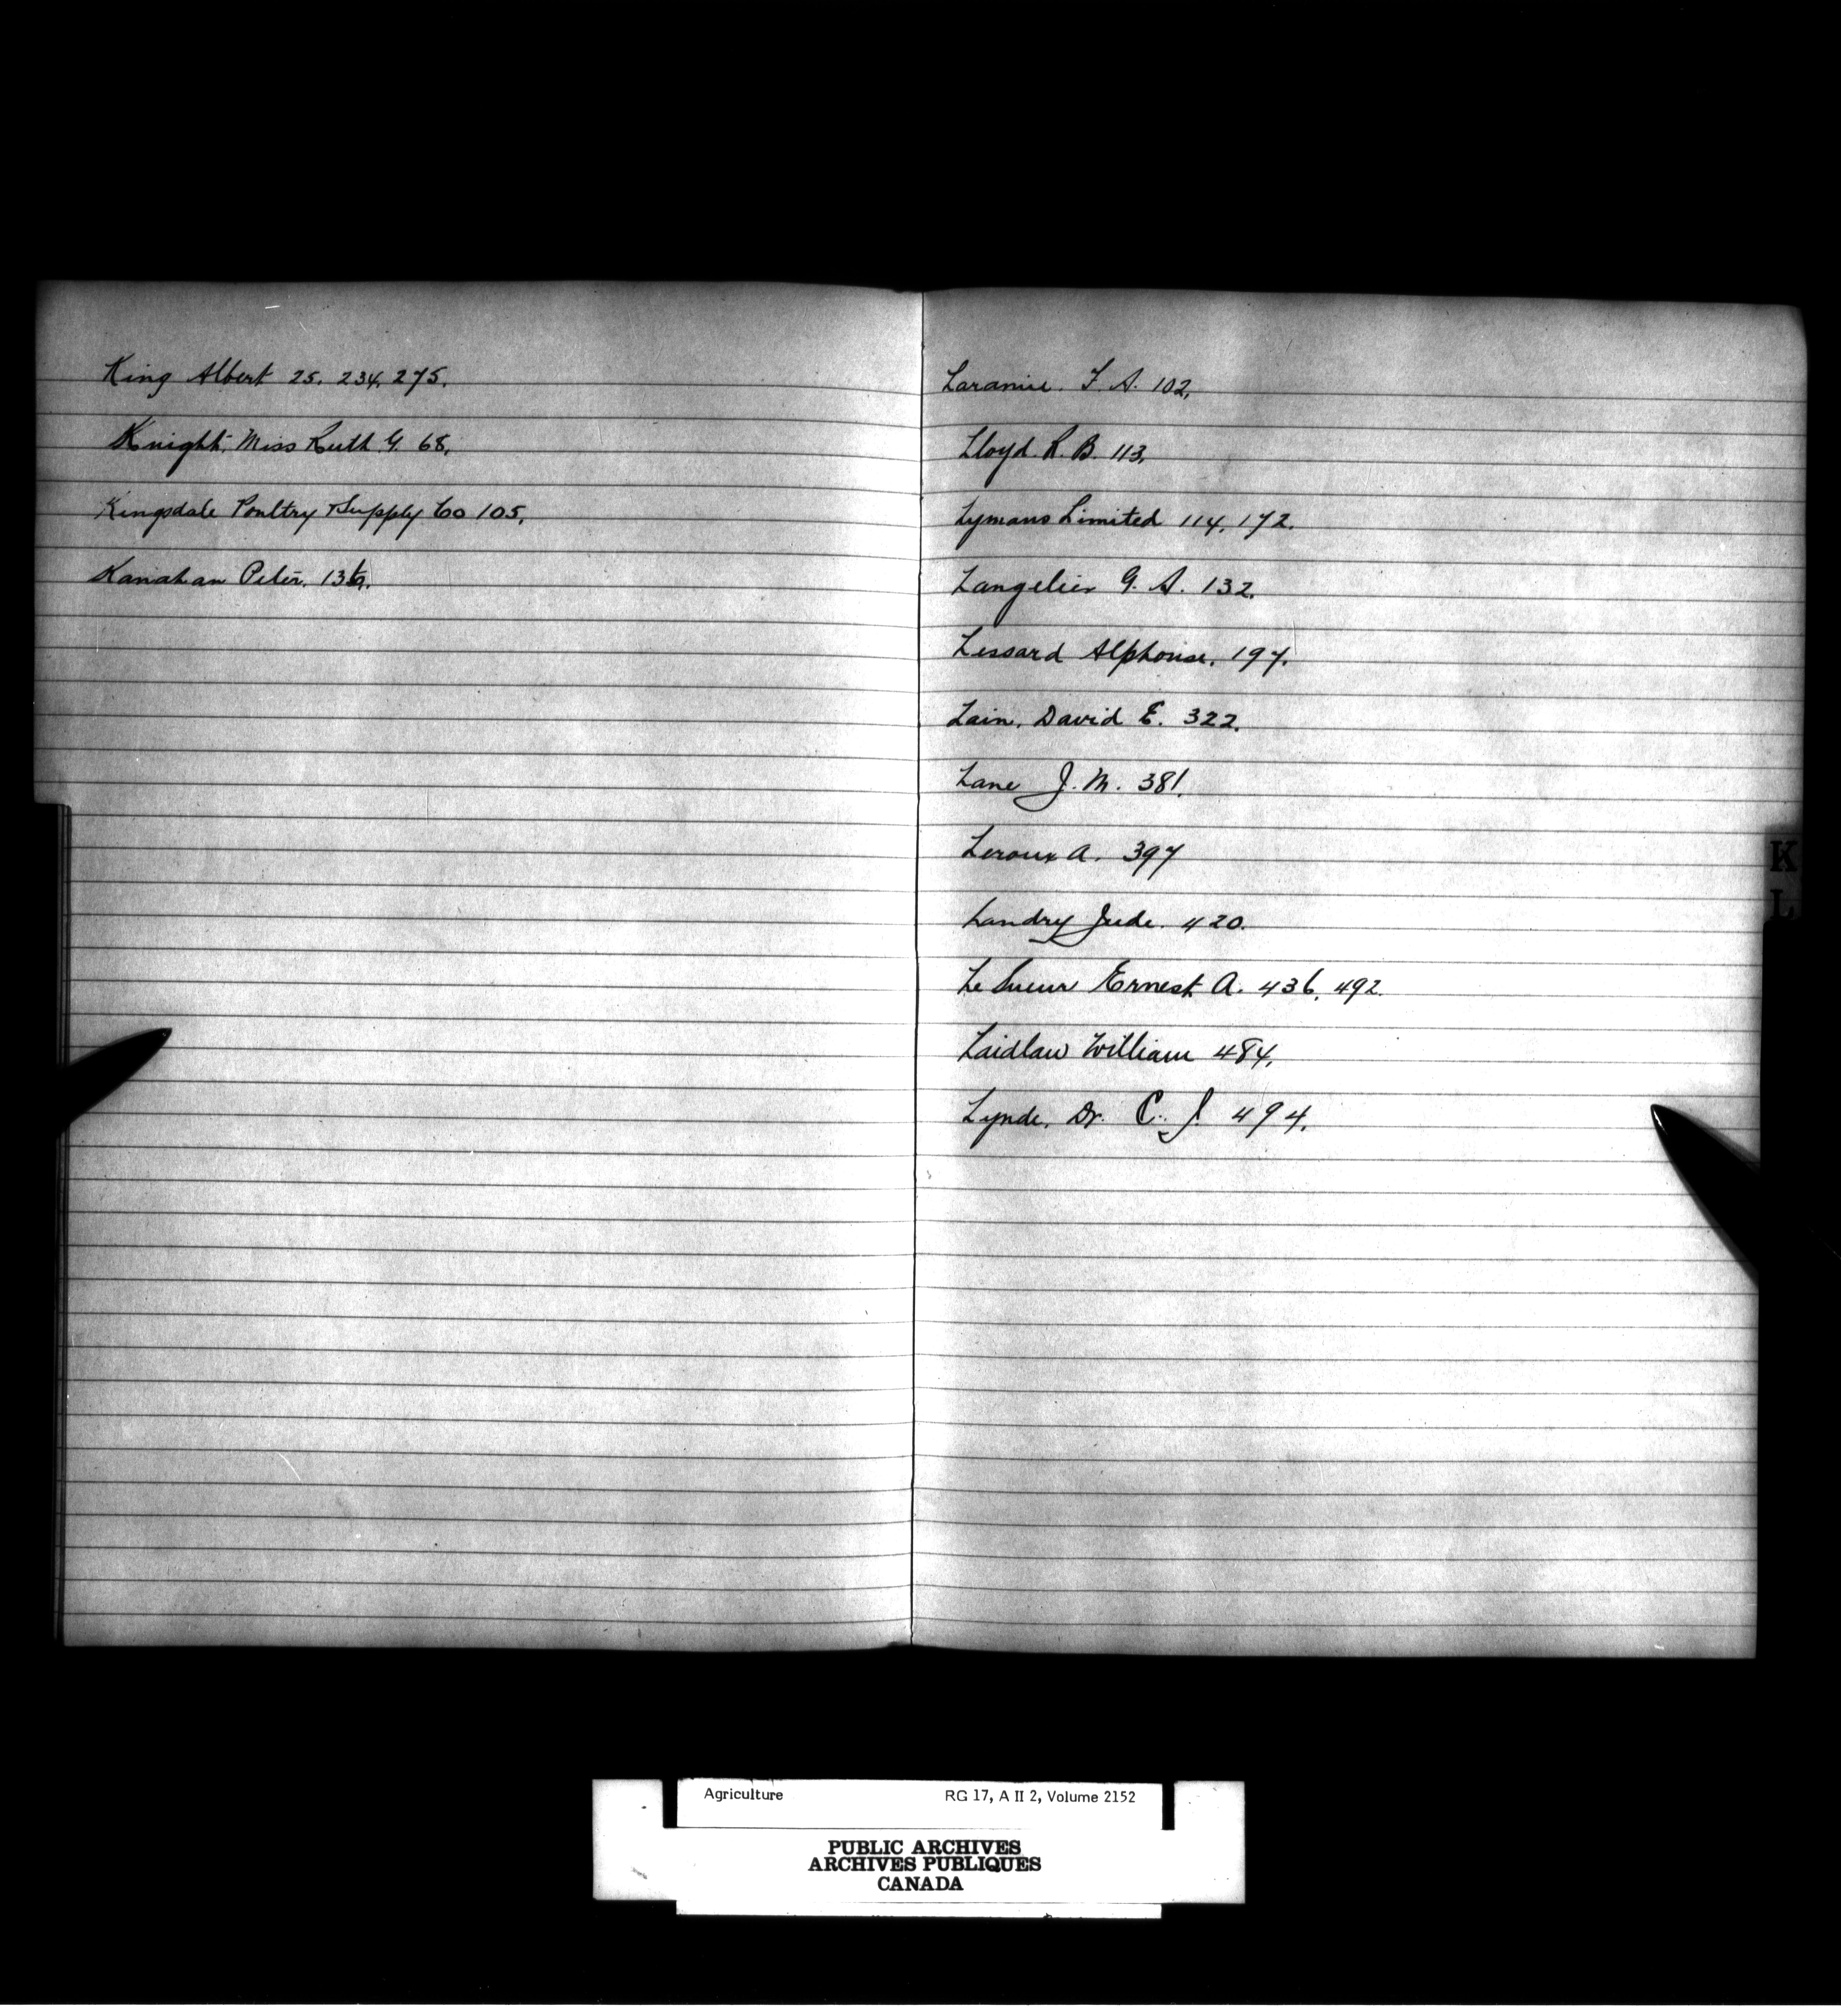 King Albert 25. 234. 275.
Knight. Miss Ruth G. 68.
Kingsdale Poultry Supply Co 105.
Kanahan Peter.
Laramie. F. A. 102.
Lloyd. R. B. 113.
Lymans Limited 114. 172.
Langelier G. A. 132.
Lessard Alphonse. 197.
Lain. David E. 322.
Lane J. M. 381.
Leroux A. 397
Landry Jude. 420.
Le Sueur Ernest A. 436. 492.
Laidlaw William 484.
Lynde. Dr. C. J. 494.
K
L
Agriculture RG 17, A II 2, Volume 2152
PUBLIC ARCHIVES
ARCHIVES PUBLIQUES
CANADA